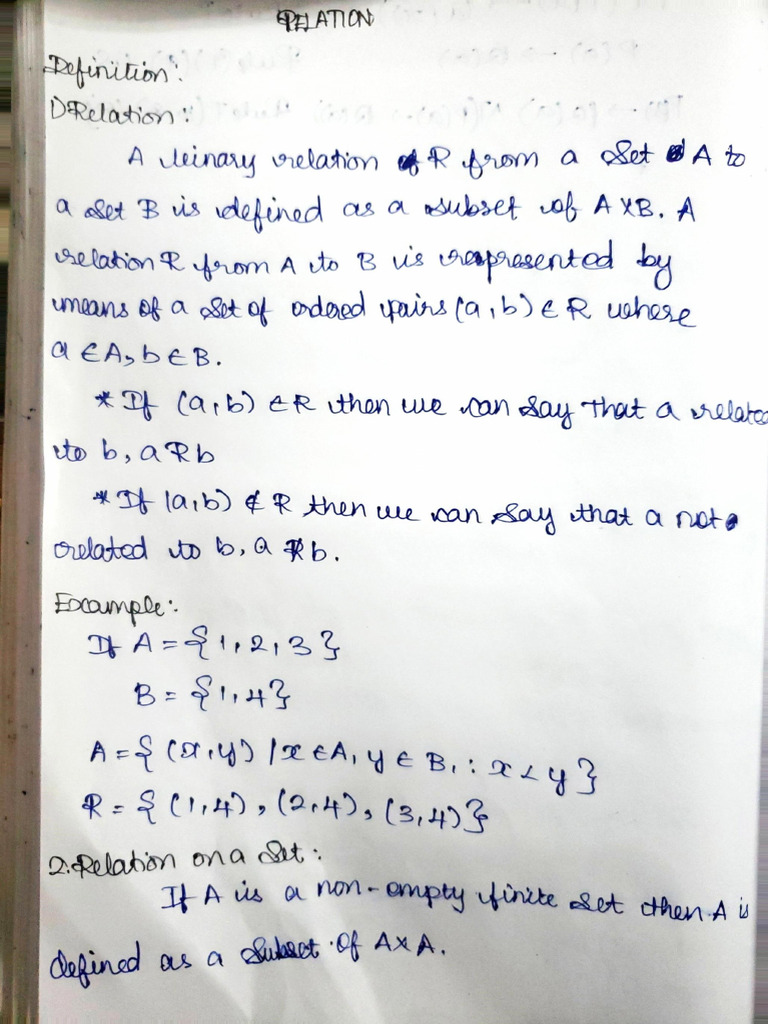 RELATION
Definition:
1) Relation:
A binary relation of R from a set A to
a set B is defined as a subset of A×B. A
relation R from A to B is represented by
means of a set of ordered pairs (a,b) ∈ R where
a ∈ A, b ∈ B.
* If (a,b) ∈ R then we can say that a related
to b, a R b
* If (a,b) ∉ R then we can say that a not
related to b, a R̸ b.
Example:
If A = {1,2,3}
B = {1,4}
A = {(x,y) / x ∈ A, y ∈ B, : x < y}
R = {(1,4), (2,4), (3,4)}
2. Relation on a Set:
If A is a non-empty finite set then A is
defined as a subset of A×A.